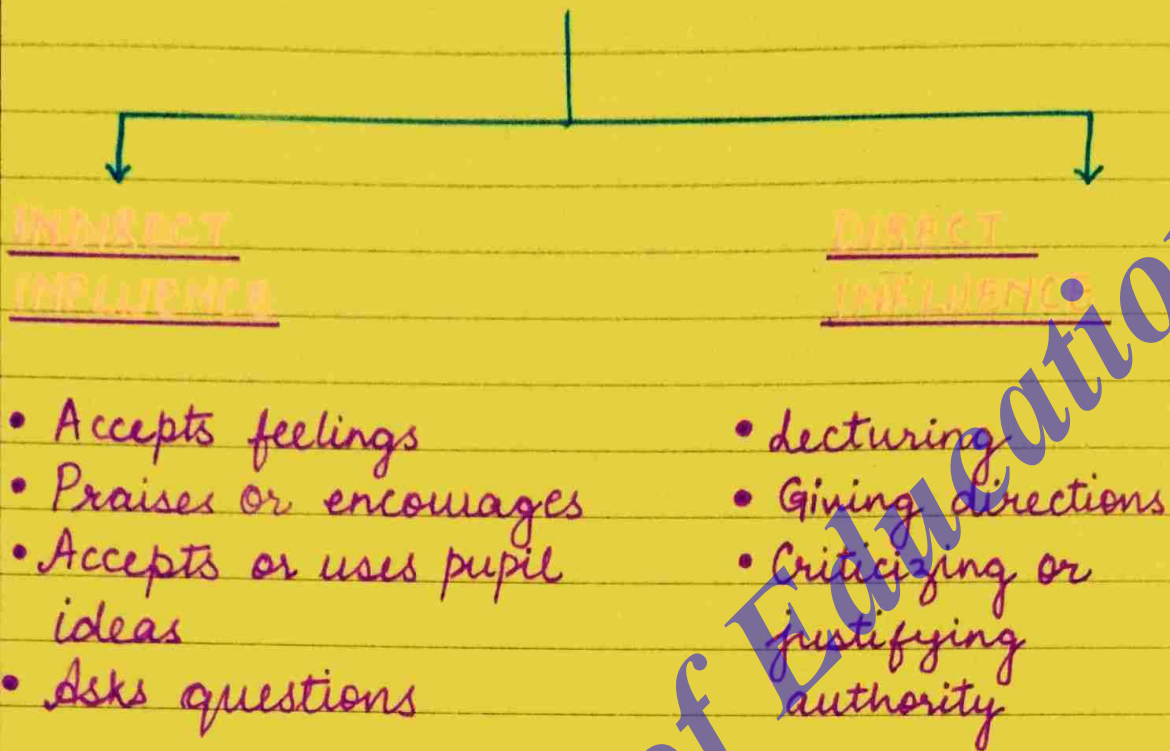 INDIRECT
INFLUENCE
• Accepts feelings
• Praises or encourages
• Accepts or uses pupil
ideas
• Asks questions
DIRECT
INFLUENCE
• Lecturing
• Giving directions
• Criticizing or
justifying
authority
of Education